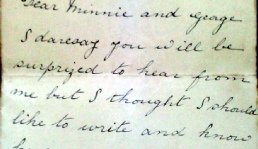 Dear Minnie and George
I daresay you will be
surprized to hear from
me but I thought I should
like to write and know